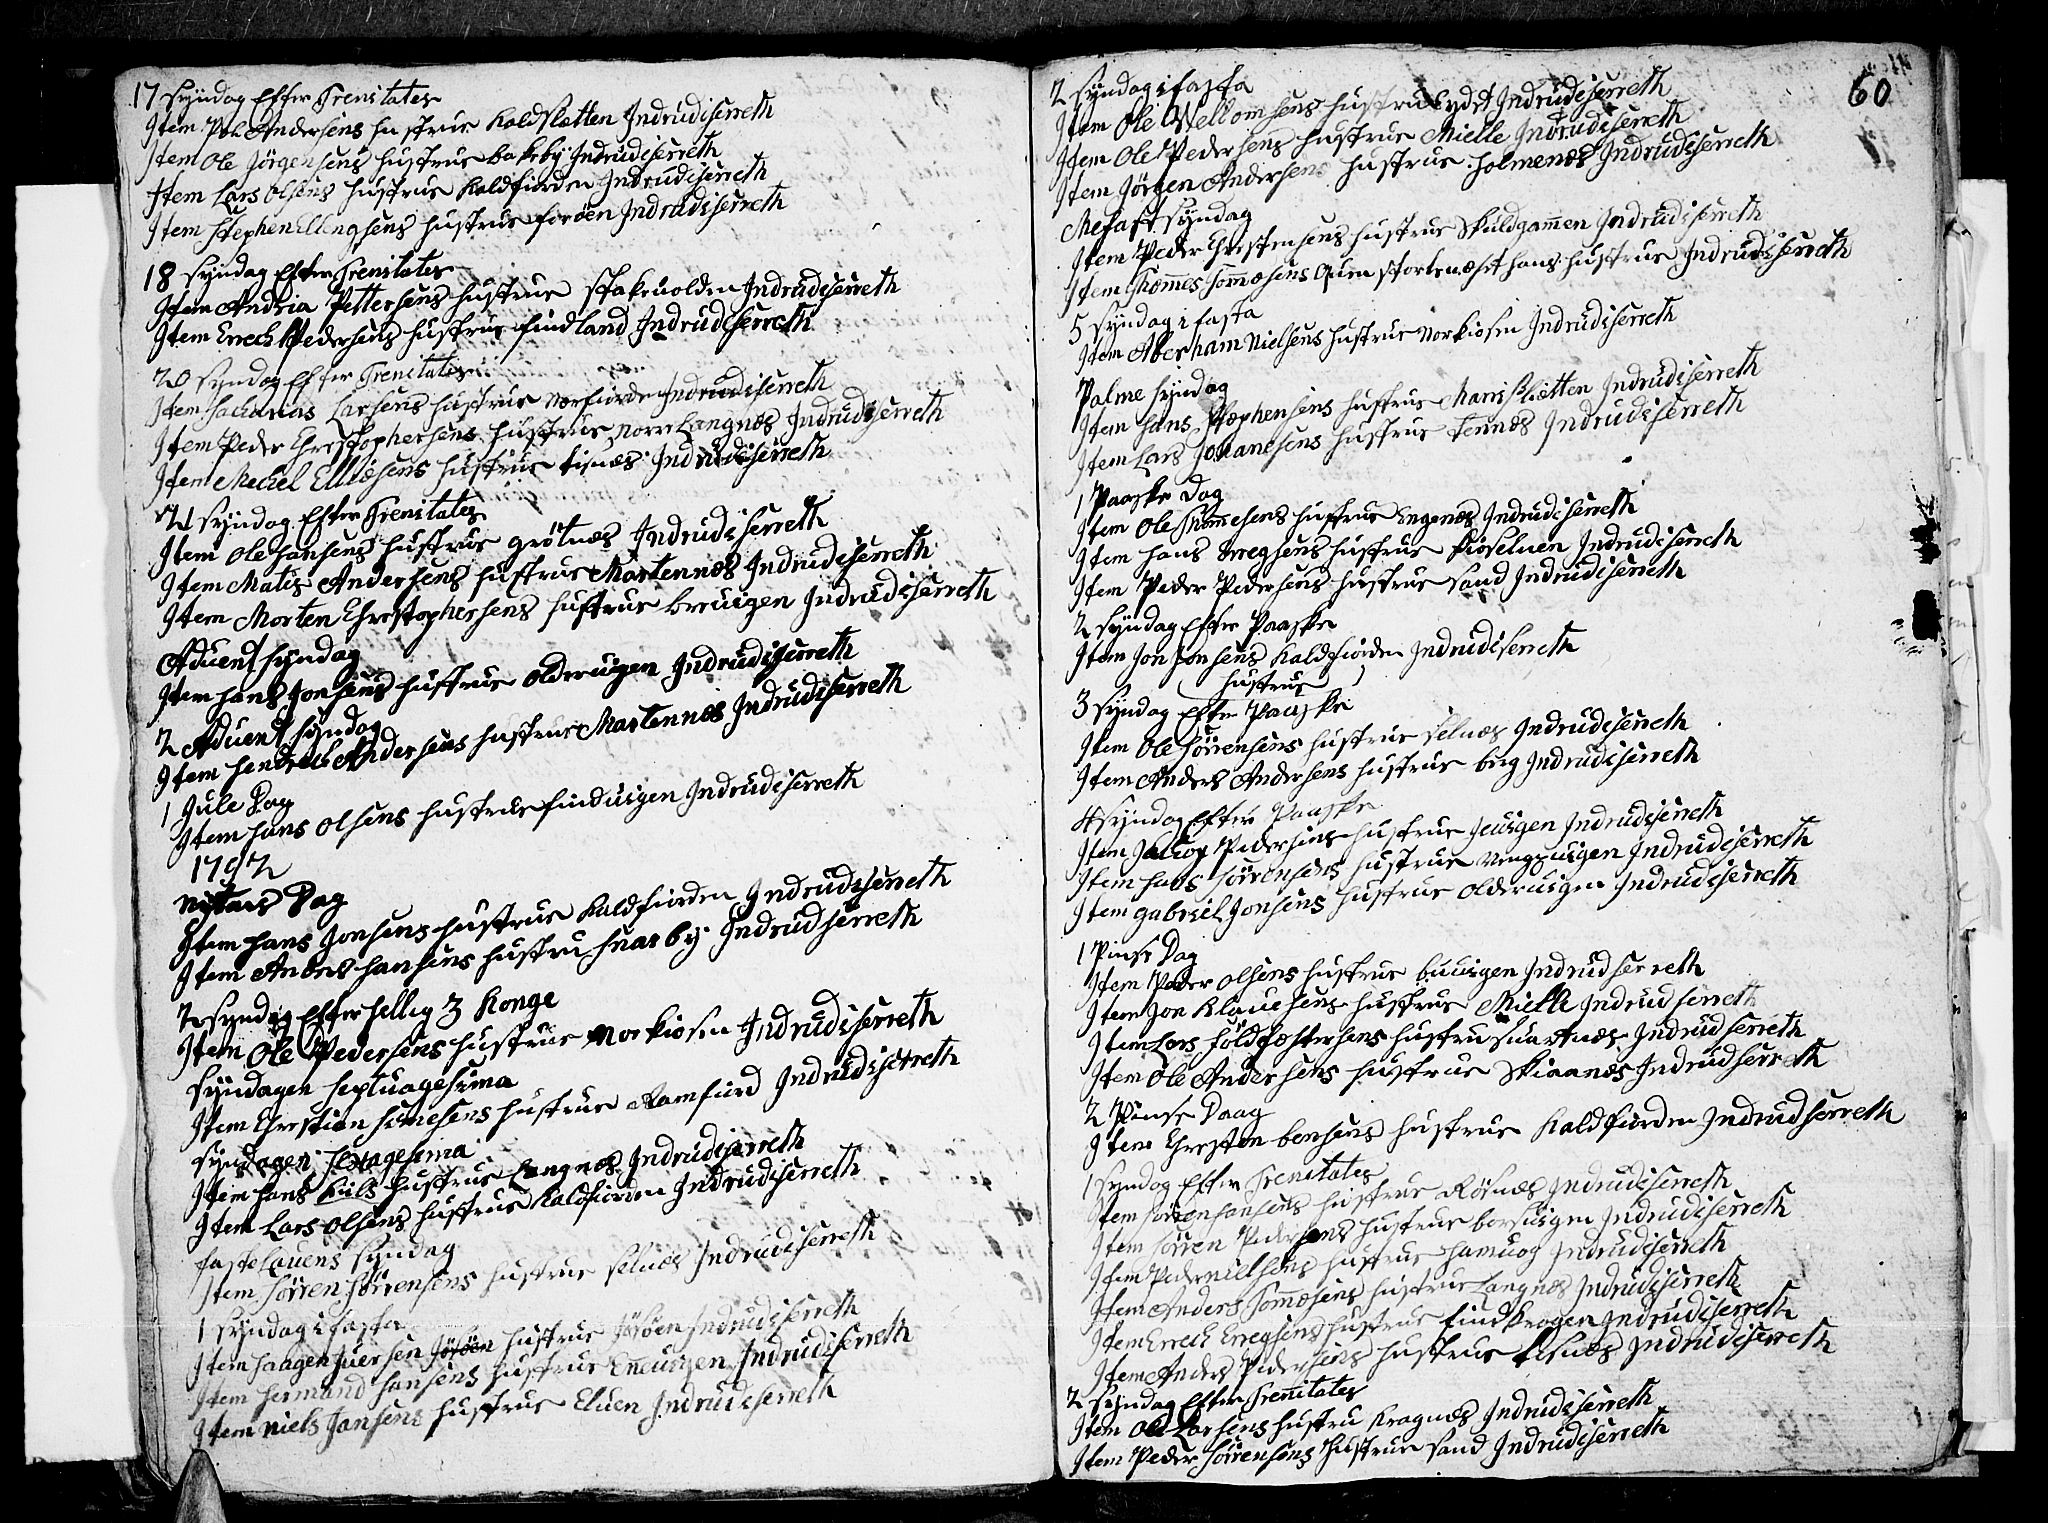 17 Syndag Efter Trenitates
Item Pol Andersens hustrue Kaldslætten Indrüdiserreth
Item Ole Jörgensens hustrue bakeby Indrudiserreth
Item Lars Olsens hustrue Kaldfiorden Indrudiserreth
Item Stephen Ellengsens hustrue forøen Indrudiserreth
18 Syndag Efter Trenitates
Item Andria Pettersens hustrue stakeuolden Indrudiserreth
Item Errech Pedersens hustrue findland Indrudiserreth
20 Syndag Efter Trenitates
Item Sacharias Larsens hustrue Norfiorden Indrudiserreth
Item Peder Chrestophersens hustrue Norre Langnæs Indrudiserreth
Item Mechel Elliæsens hustrue tisnæs Indrudiserreth
21 Syndag Efter Trenitates
Item Ole hansens hustrue grötnæs Indrudiserreth
Item Matis Andersens hustrue Mortennæs Indrudiserreth
Item Morten Chrestophersens hustrue breuigen Indrudiserreth
Aduent Syndag
Item hans Jonsens hustrue olderuigen Indrudiserreth
2 Aduent Syndag
Item hendrech Andersens hustrue Martennæs Indrudiserreth
1 Jule Dag
Item hans olsens hustrue finduigen Indrudiserreth
1792
Nytars Dag
Item hans Jonsens hustrue Kaldfiorden Indrudiserreth
Item Anders hansens hustru snarby Indrudserreth
2 Syndag Efter hellig 3 Konge
Item Ole Pedersens hustrue Norkiosen Indrudiserreth
Syndagen septuagesima
Item Chrestian simesens hustrue Ramfiord Indrudiserreth
Syndagen sexagesima
Item hans Kiils hustrue Langnæs Indrudiserreth
Item Lars olsens hustrue Kaldfiorden Indrudiserreth
faste Lauens Syndag
Item Sörren Sörrensens hustrue selnæs Indrudiserreth
1 Syndag i fasta
Item haagen Juersen Jösöen hustrue Jösöen Indrudiserreth
Item hermand hansens hustrue Eneuigen Indrudiserreth
Item niels Jansens hustrue Eluen Indrudiserreth
60
2 Syndag i fasta
Item Ole hustrue Indrudiserreth
Item Ole Pedersens hustrue Mielle Indrudiserreth
Item Jörgen Andersens hustrue holmenæs Indrudiserreth
Mefast Syndag
Item Peder Chrestensens hustrue Skuldgamen Indrudiserreth
Item Thommes Tommæsens Quen stortenæset hans hustrue Indrudiserreth
5 Syndag i fasta
Item Aberham Nielsens hustrue Norkiosen Indrudiserreth
Palme Syndag
Item hans Stephensens hustrue Marislætten Indrudiserreth
Item Lars Johanesens hustrue tennæs Indrudiserreth
1 Paaske Dag
Item Ole Thommesens hustrue Engenæs Indrudiserreth
Item hans Erregsens hustrue Kiöseluen Indrudiserreth
Item Peder Pedersens hustrue sand Indrudiserreth
2 Syndag Efter Paaske
Item Jon Jonsens Kaldfiorden Indrudiserreth
hustrue
3 Syndag Efter Paaske
Item Ole Sörrensens hustrue selnæs Indrudiserreth
Item Anders Andersens hustrue berg Indrudiserreth
4 Syndag Efter Paaske
Item Jachop Pedersens hustrue Jeuigen Indrudiserreth
Item hans Sörrensens hustrue Indrudiserreth
Item gabriel Jonsens hustrue olderuigen Indrudiserreth
1 Pinse Dag
Item Peder olsens hustrue buuigen Indrudserreth
Item Jon Klauesens hustrue Mielle Indrudserreth
Item Lars földfæstersens hustru suartnæs Indrudserreth
Item Ole Andersens hustrue Skiaanæs Indrudserreth
2 Pinse Daag
Item Chresten bensens hustrue Kaldfiorden Indrudserreth
1 Syndag Efter Trenitates
Item Sörren hansens hustrue Rösnæs Indrudiserreth
Item Sörren Pedersens hustrue boruigen Indrudiserreth
Item Peder nielsens hustrue hamuog Indrudiserreth
Item Anders Tomæsens hustrue Langnæs Indrudiserreth
Item Errech Erregsens hustrue findkrogen Indrudiserreth
Item Anders Pedersens hustrue tisnæs Indrudiserreth
2 Syndag Efter Trenitates
Item Ole Larsens hustru Kragnæs Indrudiserreth
Item Peder Sörrensens hustrue sand Indrudiserreth